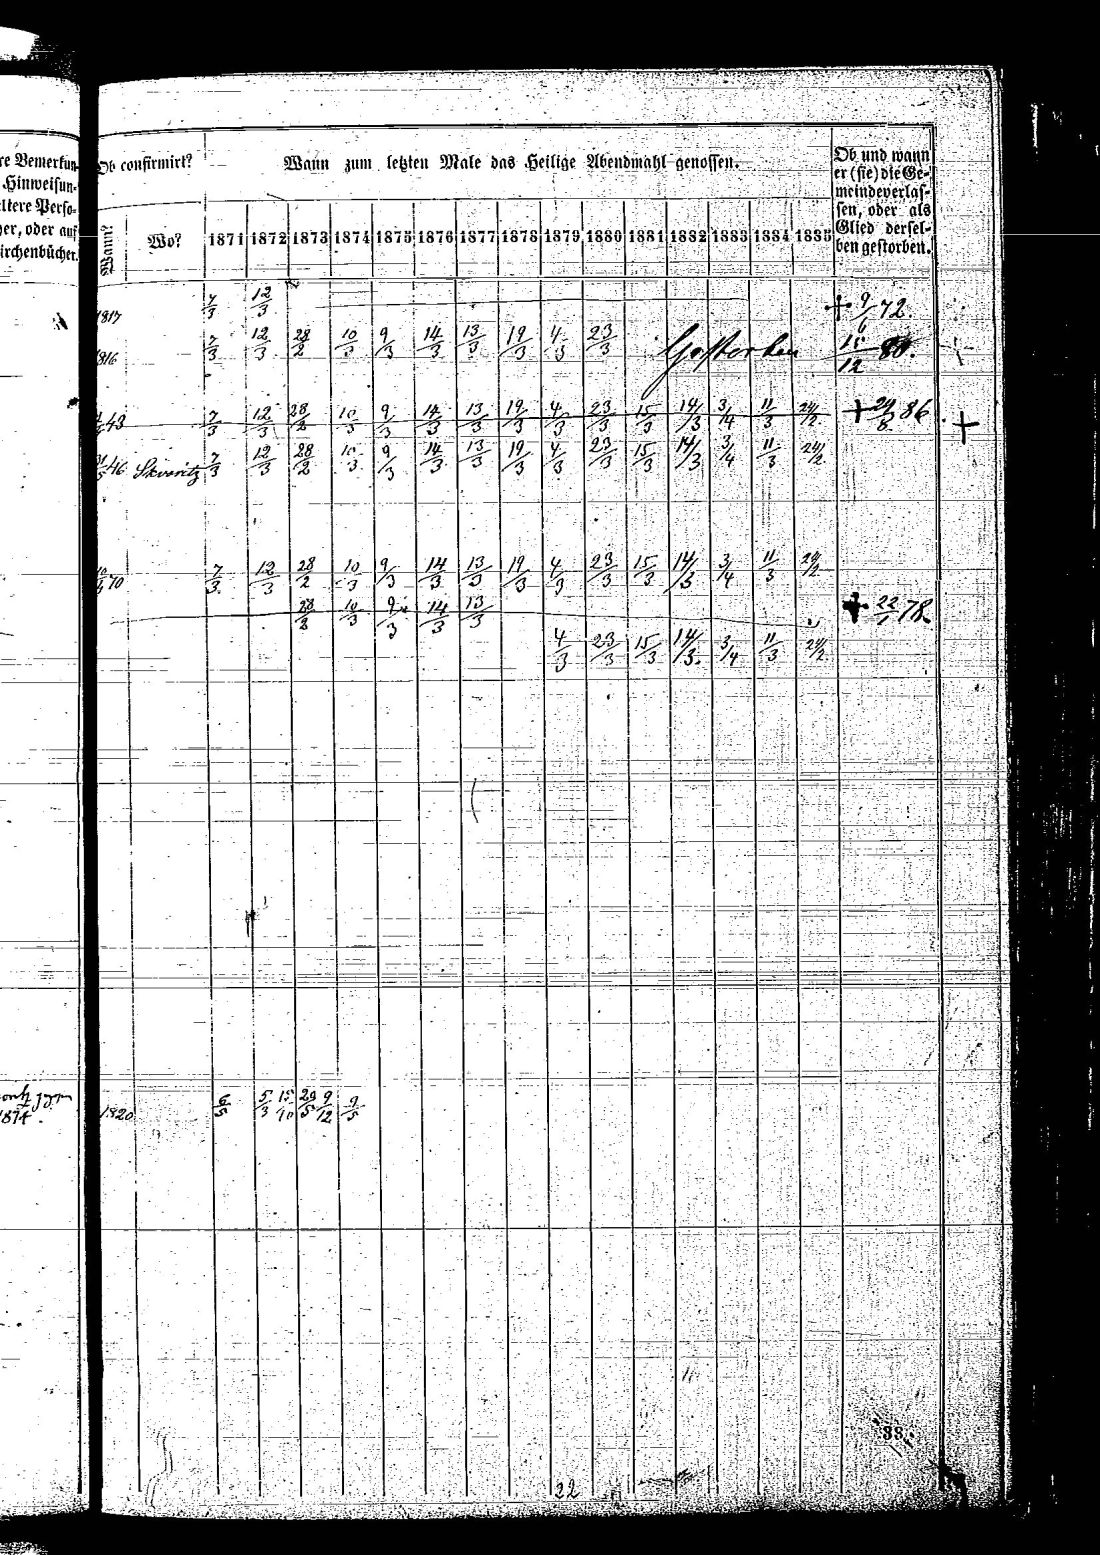 re Bemerkun-
Hinweisun-
ltere Perso-
her, oder auf
irchenbücher.
Ob confirmirt?
Wann?
Wo?
Wann zum letzten Male das Heilige Abendmahl genossen.
1871 1872 1873 1874 1875 1876 1877 1878 1879 1880 1881 1882 1883 1884 1885
Ob und wann
er (sie) die Ge-
meinde verlas-
sen, oder als
Glied dersel-
ben gestorben.
1817 7/3 12/3 + 9/6 72.
1816 7/3 12/3 28/2 10/3 9/3 14/3 13/3 19/3 4/3 23/3 Gestorben 15/12 80.
43 7/3 12/3 28/2 10/3 9/3 14/3 13/3 19/3 4/3 23/3 15/3 14/3 3/4 11/3 24/2 + 24/8 86 +
46 7/3 12/3 28/2 10/3 9/3 14/3 13/3 19/3 4/3 23/3 15/3 14/3 3/4 11/3 24/2
70 7/3 12/3 28/2 10/3 9/3 14/3 13/3 19/3 4/3 23/3 15/3 14/3 3/4 11/3 24/2
28/2 10/3 9/3 14/3 13/3 + 22/1 78
4/3 23/3 15/3 14/3 3/4 11/3 24/2
1874. 1820 6/5 5/3 15/10 20/5 9/12 9/5
38.
22